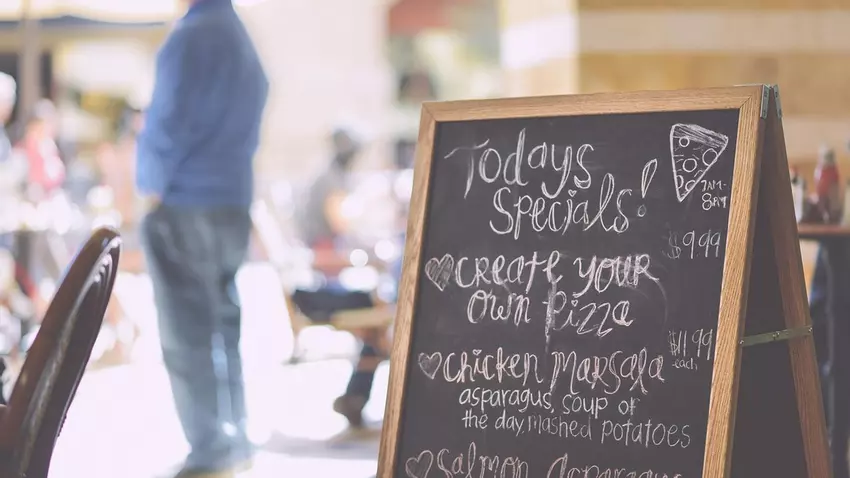 Todays
Specials!
7AM-
8PM
$9.99
CREATE YOUR
Own Pizza
$11.99
each
Chicken Marsala
asparagus, soup of
the day, mashed potatoes
Salmon Asparagus